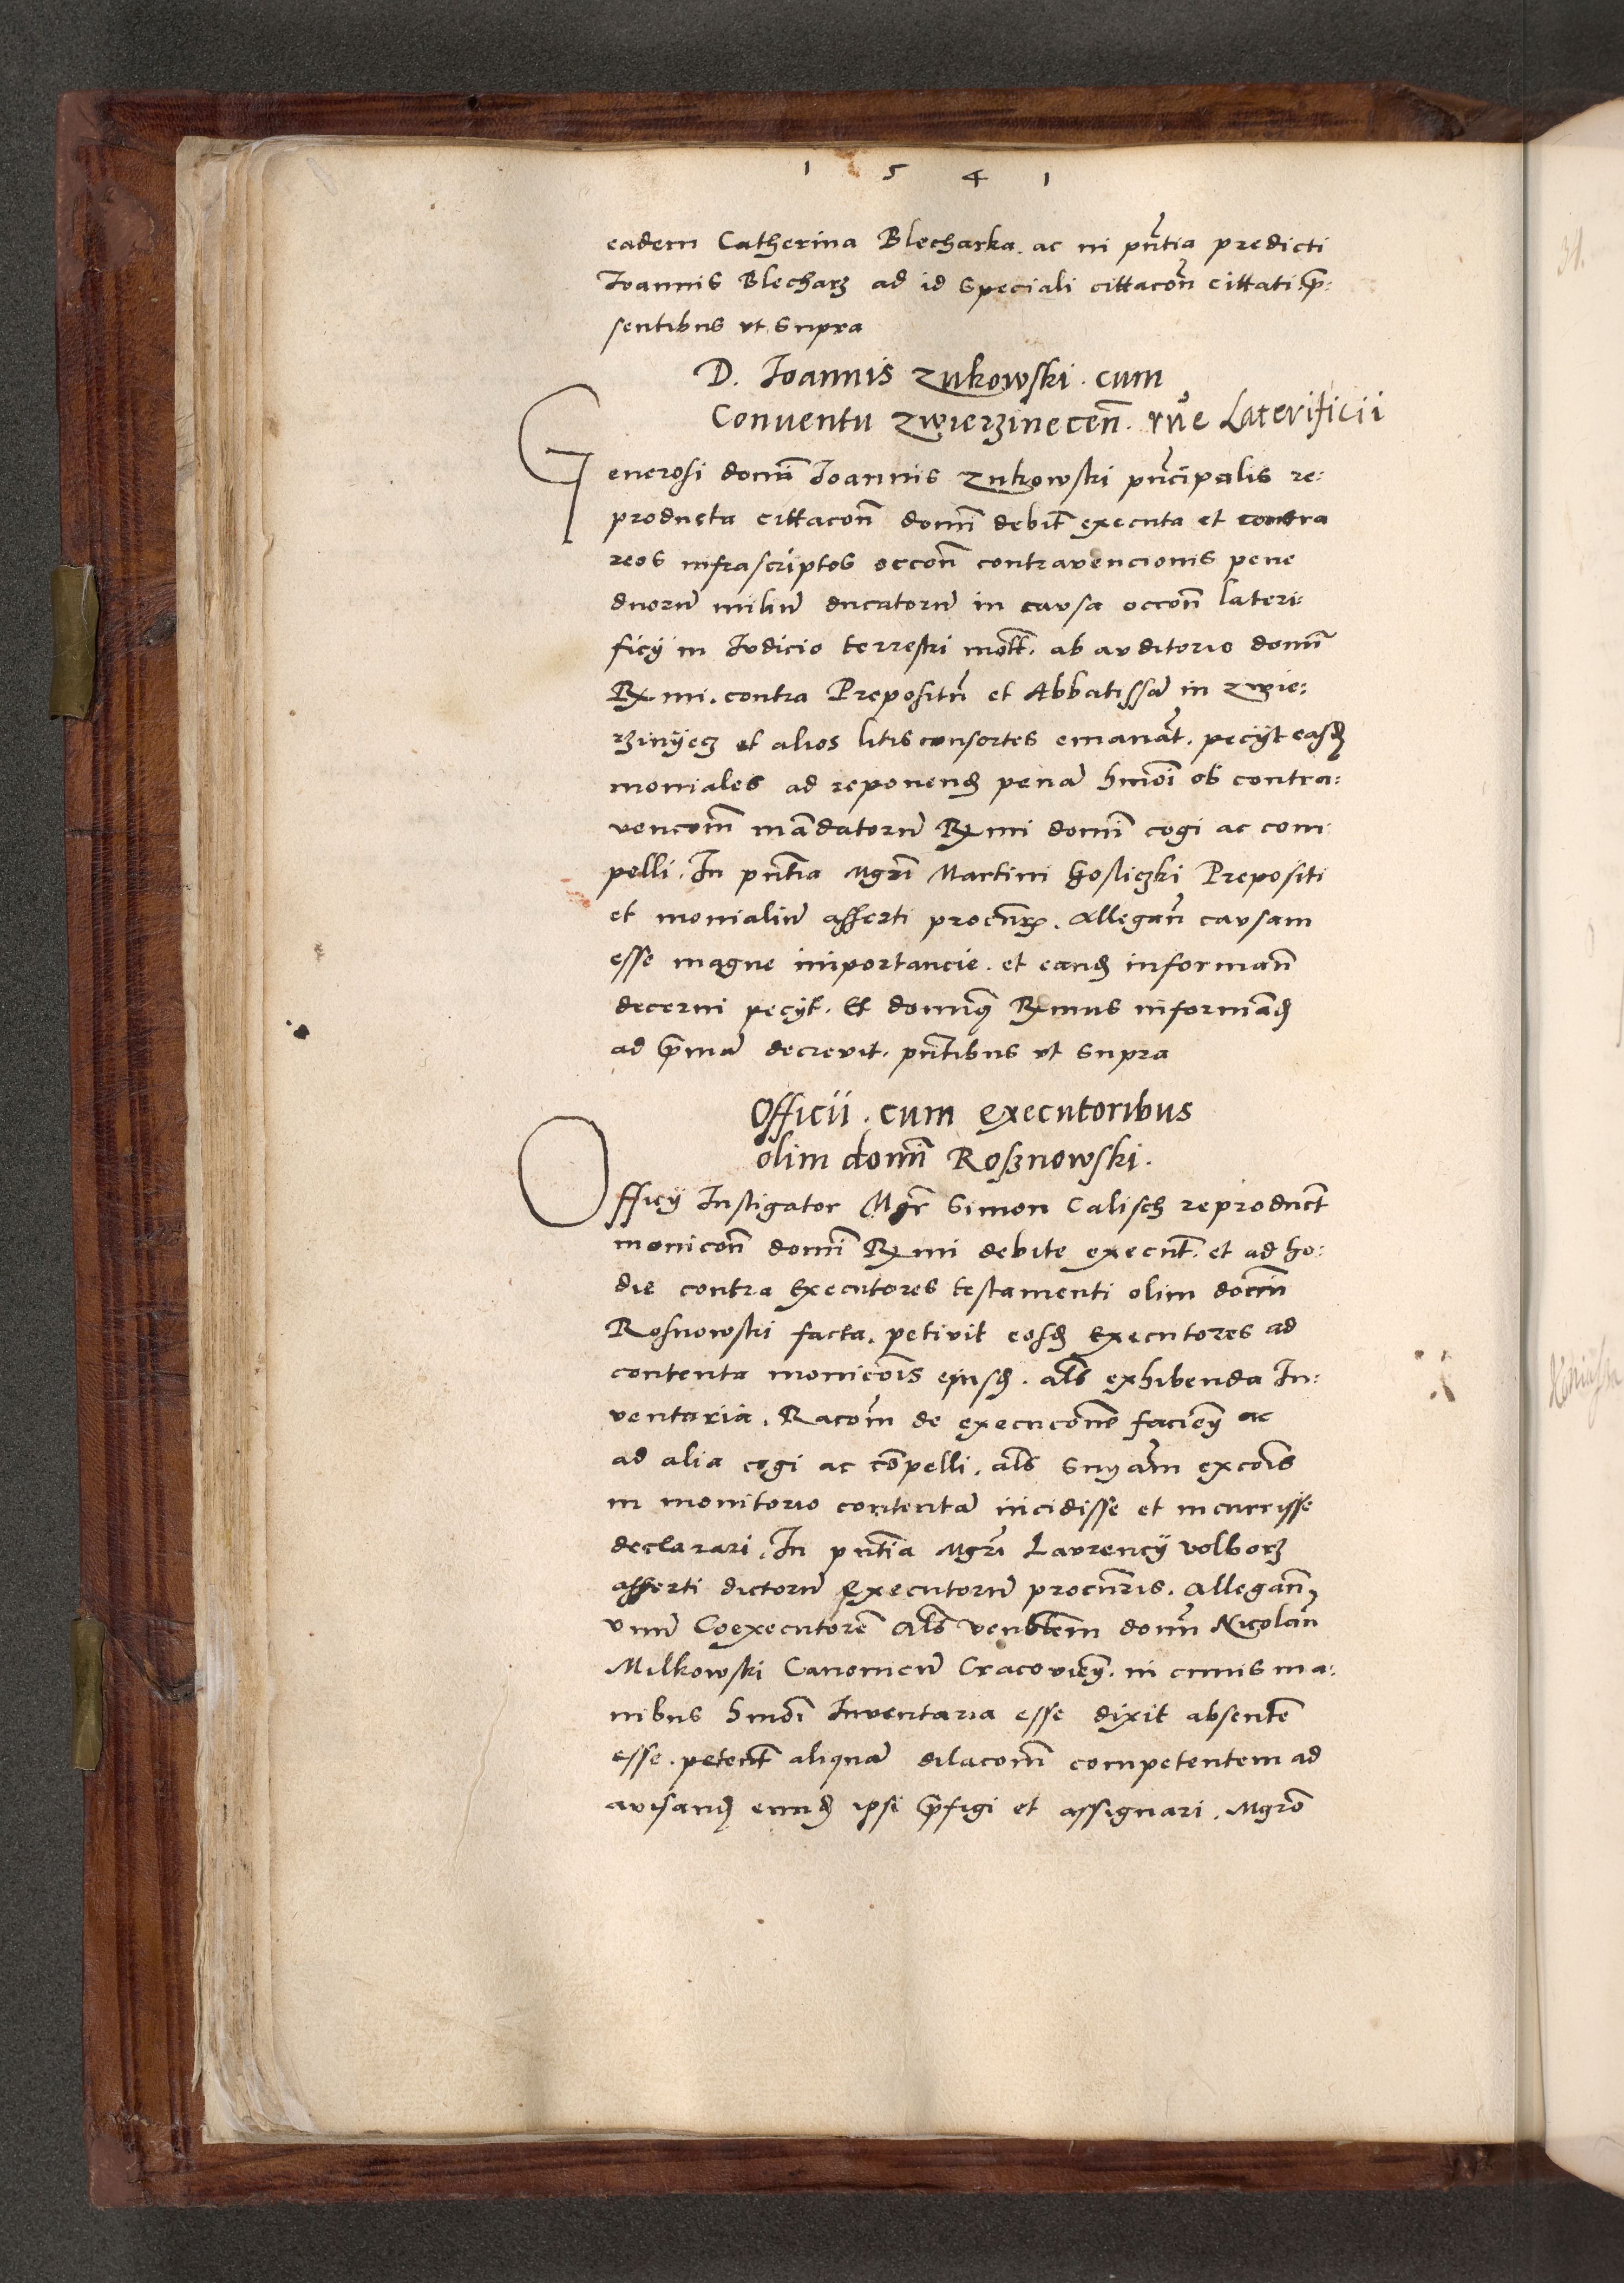 1 5 4 1
eadem Catherina Blecharka. ac in pn̄tia predicti
Ioannis Blecharz ad id speciali cittacōn cittati p̄:
sentibus vt supra
D. Ioannis Zukowski. cum
Conuentu Zwierzinecen̄. rn̄e Laterificii
Generosi domī Ioannis Zukowski pn̄cipalis re:
producta cittacōn domī debit̄ executa et contra
reos infrascriptos occōn contravencionis pene
duorū miliū ducatorū in causa occōn lateri:
ficij in Iudicio terrestri mot̄. ab auditorio domī
Rmi. contra Prepositū et Abbatissā in Zwie:
rzinyecz et alios litis consortes emanāt. pecijt easdē
moniales ad reponend̄ penā hmōi ob contra:
vencōm mādatorū Rmi domī cogi ac com
pelli. In pn̄tia Mgrī Martini Gosliczki Prepositi
et monialiū asserti procur̄. Allegan̄ causam
esse magne importancie. et eand̄ informan̄
decerni pecijt. Et domīq Rmus informād̄
ad p̄mā decrevit. pn̄tibus vt supra
Officii. cum executoribus
olim domī Roznowski.
Officij Instigator Mgr̄ Simon Calisch reproduct̄
monicōn domī Rmi debite execut̄. et ad ho:
die contra Executores testamenti olim domī
Rosnowski facta. petivit eosd̄ Executores ad
contenta monicōis eiusd̄. als̄ exhibenda In:
ventaria. Racōm de execucōne faciēn̄ ac
ad alia cogi ac cōpelli. als̄ snīam excōis
in monitorio contentā incidisse et incurrisse
declarari. In pn̄tia Mgrī Laurencij Volborz
asserti dictorū Executorū procur̄is. Allegan̄
vnū Coexecutorē als̄ venblem domī Nicolaū
Milkowski Canonicū Cracovien̄. in cuius ma:
nibus hmōi Inventaria esse dixit absentē
esse. petent̄ aliquā dilacōm competentem ad
avisand̄ eund̄ ipsi p̄figi et assignari. Mgrō
31.